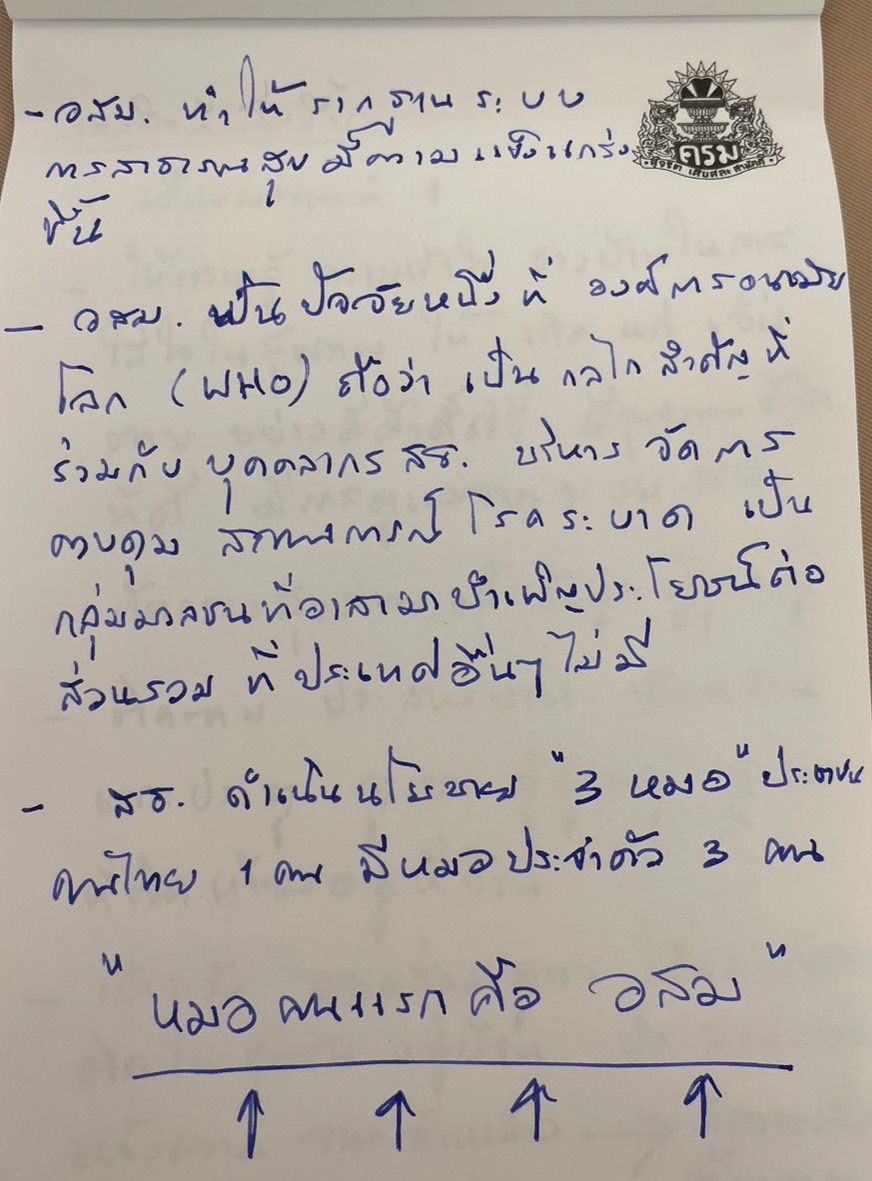 - อสม. ทำให้ รากฐาน ระบบ
การสาธารณสุข มีความแข็งแกร่ง
ขึ้น
ครม
- อสม. เป็น ปัจจัยหนึ่ง ที่ องค์การอนามัย
โลก (WHO) ถือว่า เป็น กลไก สำคัญ ที่
ร่วมกับ บุคคลากร สธ. บริหาร จัดการ
ควบคุม สถานการณ์ โรคระบาด เป็น
กลุ่มมวลชนที่อาสามาบำเพ็ญประโยชน์ต่อ
ส่วนรวม ที่ ประเทศอื่นๆ ไม่มี
- สธ. ดำเนินนโยบาย "3 หมอ" ประชาชน
คนไทย 1 คน มีหมอประจำตัว 3 คน
"หมอคนแรกคือ อสม"